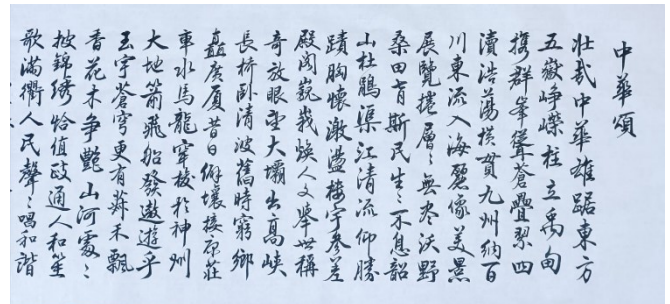 中華頌
壯哉中華雄踞東方
五嶽崢嶸柱立禹甸
攜群峯聳蒼疊翠四
瀆浩蕩横貫九州納百
川東流入海麗像美景
展覽捲層々無尽沃野
桑田育斯民生々不息韶
山杜鵑渠江清流仰勝
蹟胸懷激盪樓宇參差
殿閣巍峩焕人文舉世稱
奇放眼望大壩出高峽
長桥卧清波舊時窮鄉
矗廣厦昔日僻壤接康莊
車水馬龍穿梭於神州
大地箭飛船發遨遊乎
玉宇蒼穹更有禾飄
香花木争艷山河處々
披錦绣恰值政通人和笙
歌滿衢人民聲々唱和諧